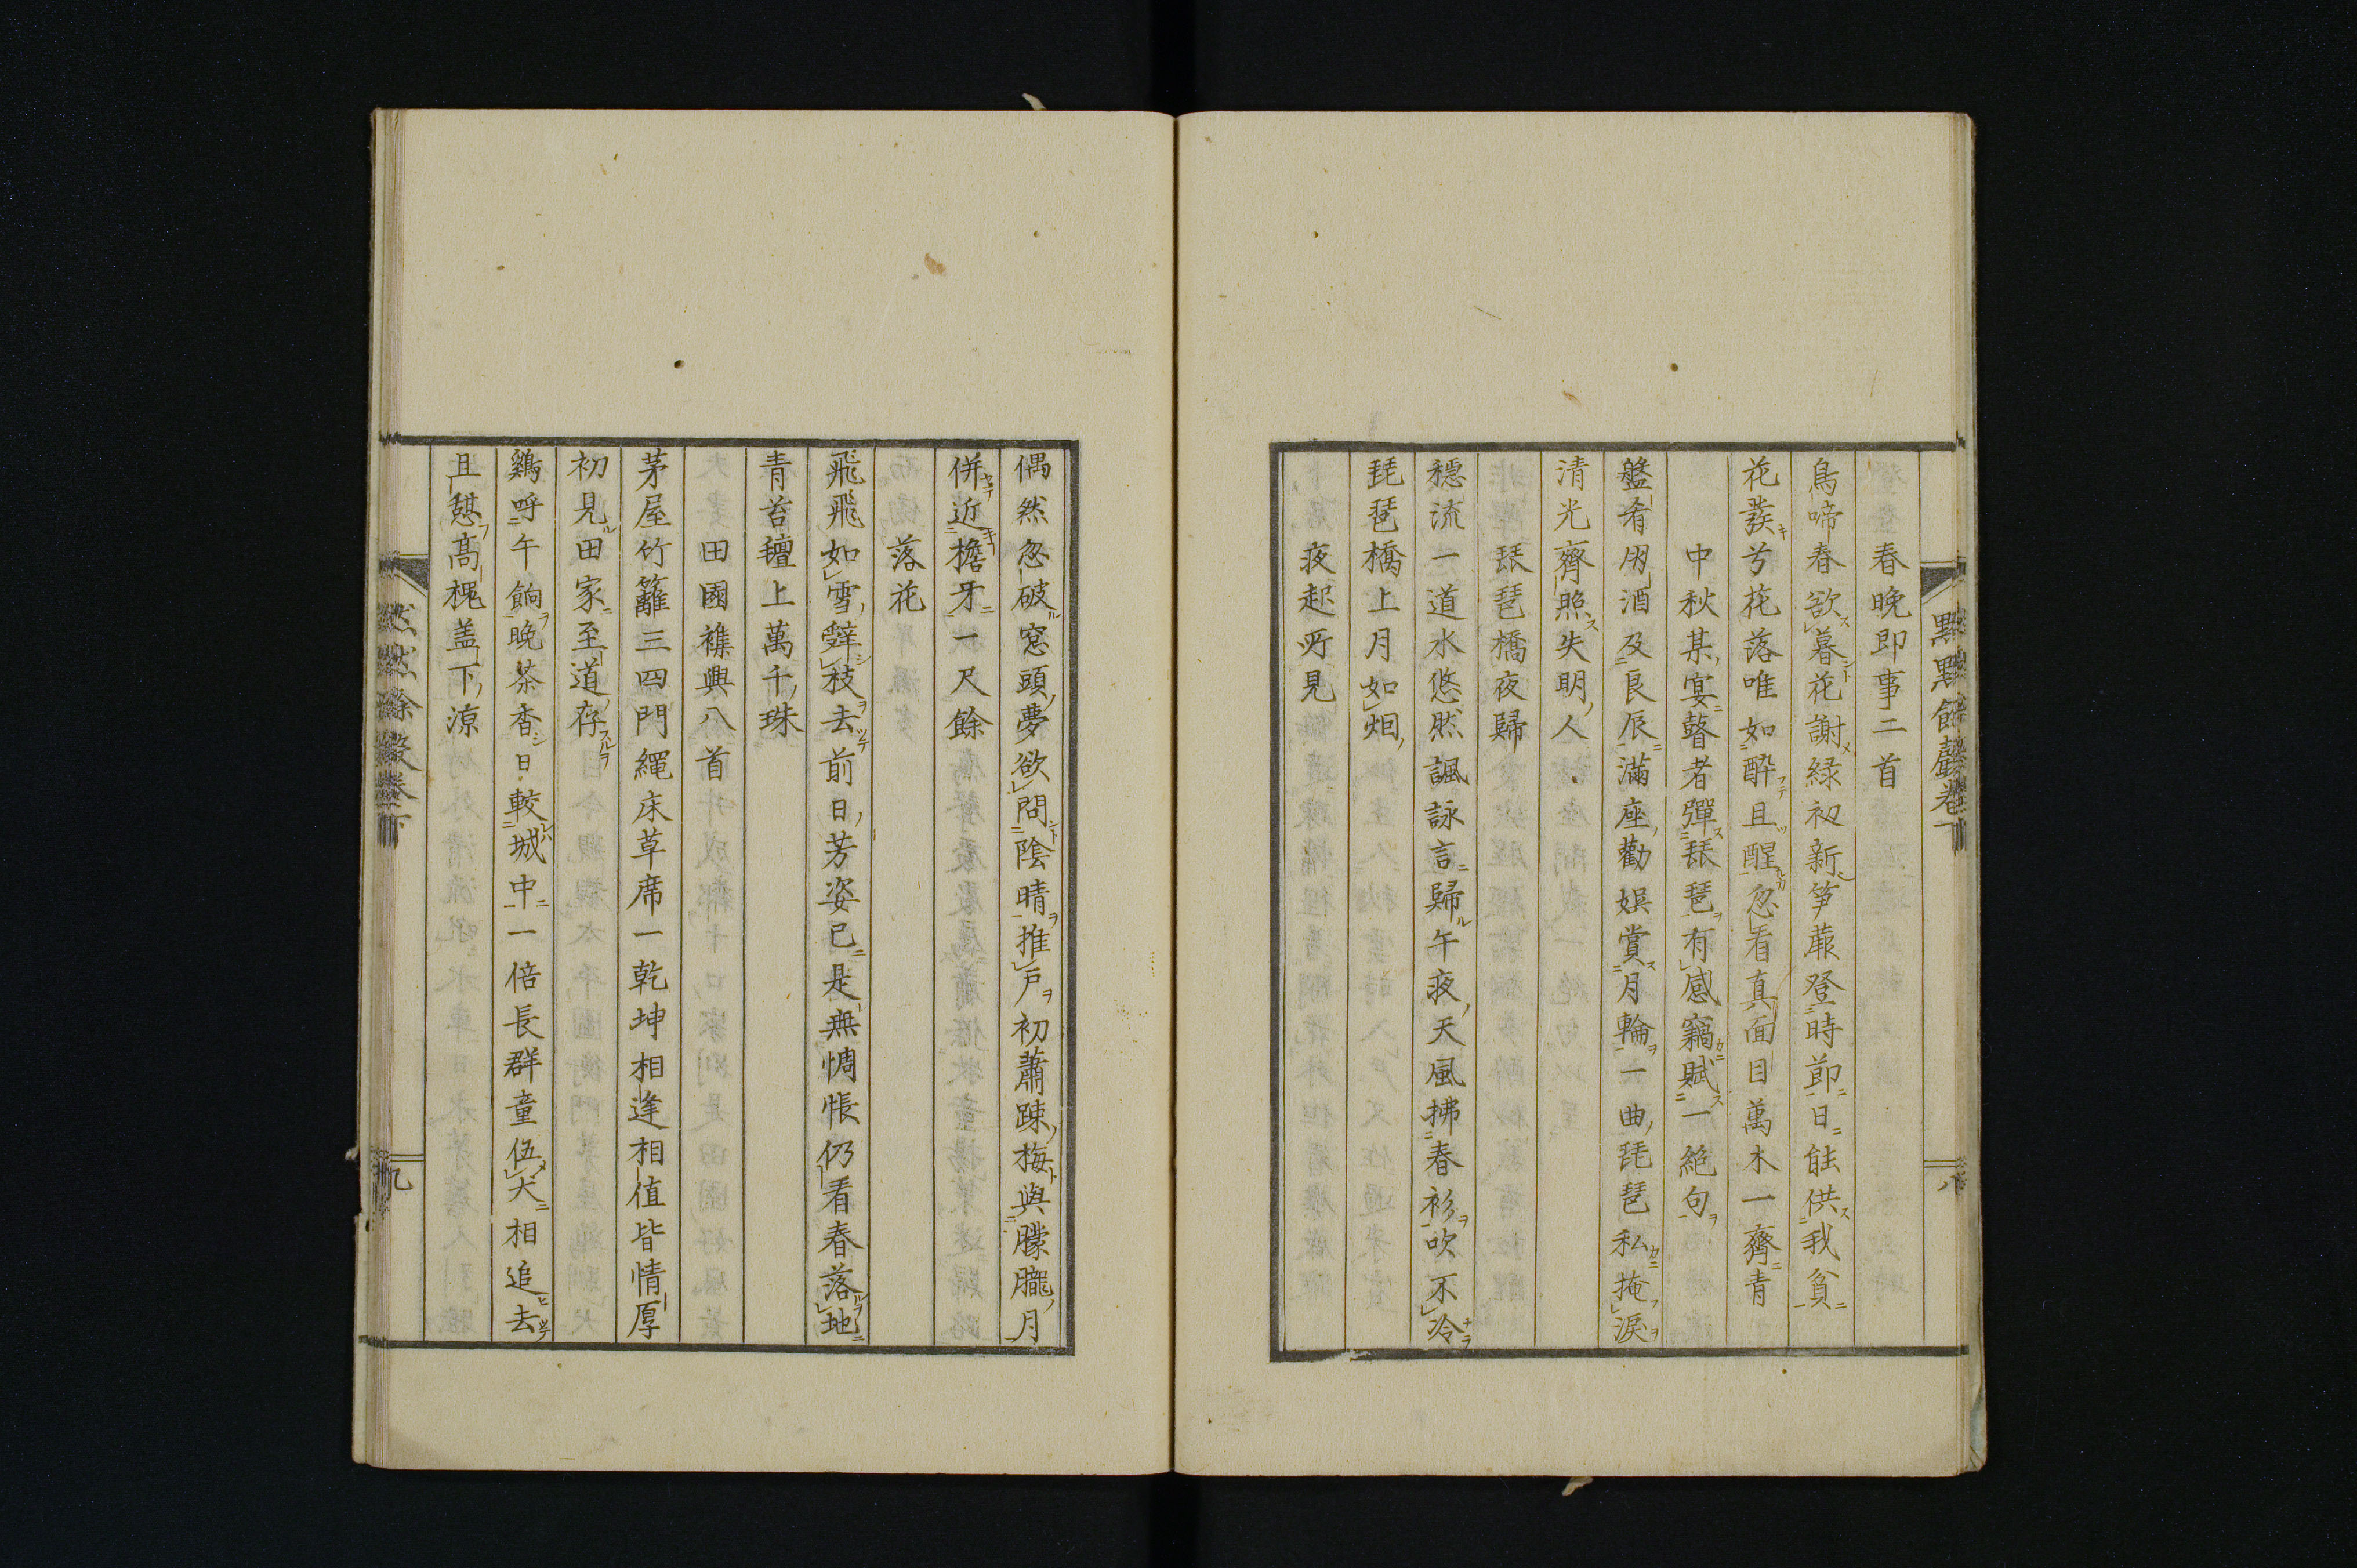 春晩即事二首
鳥啼春欲暮花謝緑初新笋蕨登時節日能供我貧
花發兮花落唯如酔且醒忽看真面目萬木一齊青
中秋某宴瞽者彈琵琶有感竊賦一絶句
盤肴用酒及良辰滿座勸娯賞月輪一曲琵琶私掩涙
清光齊照失明人
琵琶橋夜歸
穏流一道水悠然諷詠言歸午夜天風拂春衫吹不冷
琵琶橋上月如烟
夜起所見
八
偶然忽破窓頭夢欲問陰晴推戸初蕭疎梅與朦朧月
併近檐牙一尺餘
落花
飛飛如雪辤枝去前日芳姿已是無惆悵仍看春落地
青苔氊上萬千珠
田園襍興八首
茅屋竹籬三四門繩床草席一乾坤相逢相値皆情厚
初見田家至道存
鷄呼午餉晩茶香日較城中一倍長群童伍犬相追去
且憇髙槐盖下凉
九